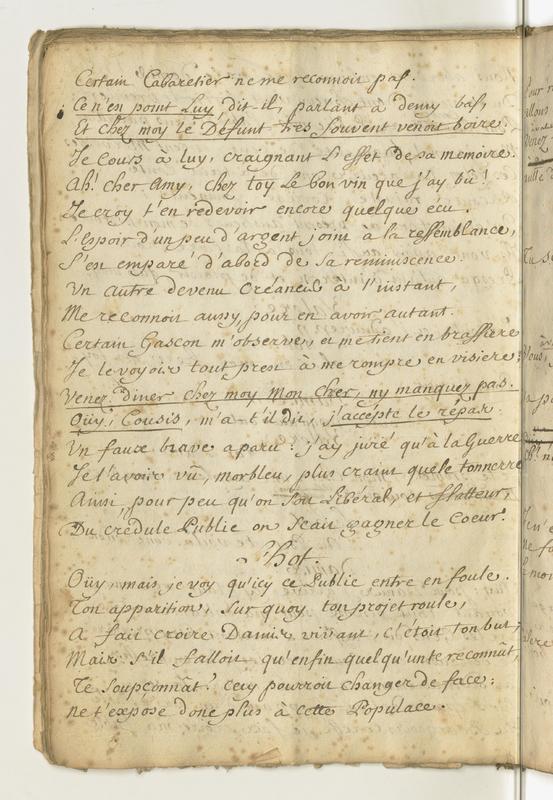 Certain Cabaretier ne me reconnoit pas.
Ce n'en point Luy, dit-il, parlant à demy bas,
Et chez moy le Défunt tres souvent venoit boire.
Je Cours à luy, craignant L'effet de sa memoire.
Ah! cher Amy, chez toy Le bon vin que j'ay bû!
Je croy t'en redevoir encore quelque écu.
L'espoir d'un peu d'argent joint à la ressemblance,
S'en emparé d'abord de sa reminiscence.
Un autre devenu Créancié à l'instant,
Me reconnoit aussy, pour en avoir autant.
Certain Gascon m'observe, et me tient en brassiere
Je le voyois tout prest à me rompre en visiere;
Venez diner chez moy Mon cher, ny manquez pas.
Oüy, Cousis, m'a-t'il dit, j'accepte le répas.
Un faux brave a paru: j'ay juré qu'à la Guerre
Je l'avois vû, morbleu, plus craint que le tonnerre
Ainsi, pour peu qu'on soit Libéral, et flatteur,
Du credule Public on scait gagner le Coeur.
Phot.
Oüy, mais je voy qu'icy ce Public entre en foule.
Ton apparition, sur quoy ton projet roule,
A fait croire Damis vivant, c'étoit ton but;
Mais s'il falloit qu'enfin quelqu'un te reconnût,
Te soupçonnât? cecy pourroit changer de face:
ne t'expose donc plus à cette Populace.